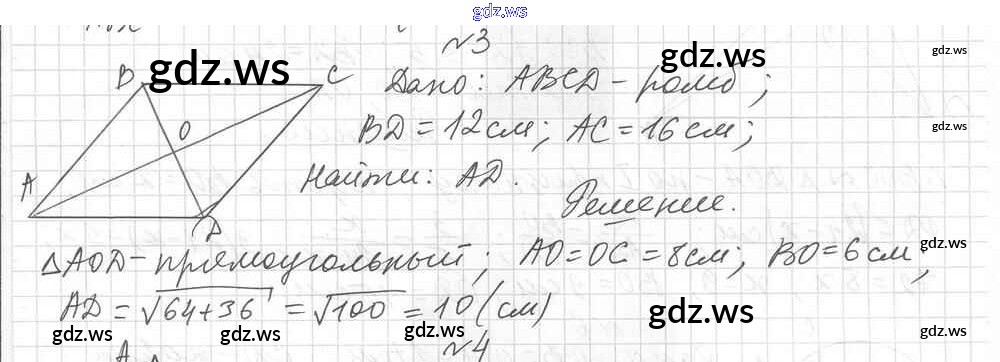 gdz.ws
№3
gdz.ws gdz.ws gdz.ws
B C Дано: ABCD - ромб;
O BD = 12 см; AC = 16 см; gdz.ws
A Найти: AD.
D Решение.
ΔAOD - прямоугольный; AO = OC = 8 см; BO = 6 см; gdz.ws
AD = √64+36 = √100 = 10 (см)
gdz.ws gdz.ws gdz.ws gdz.ws gdz.ws
№4